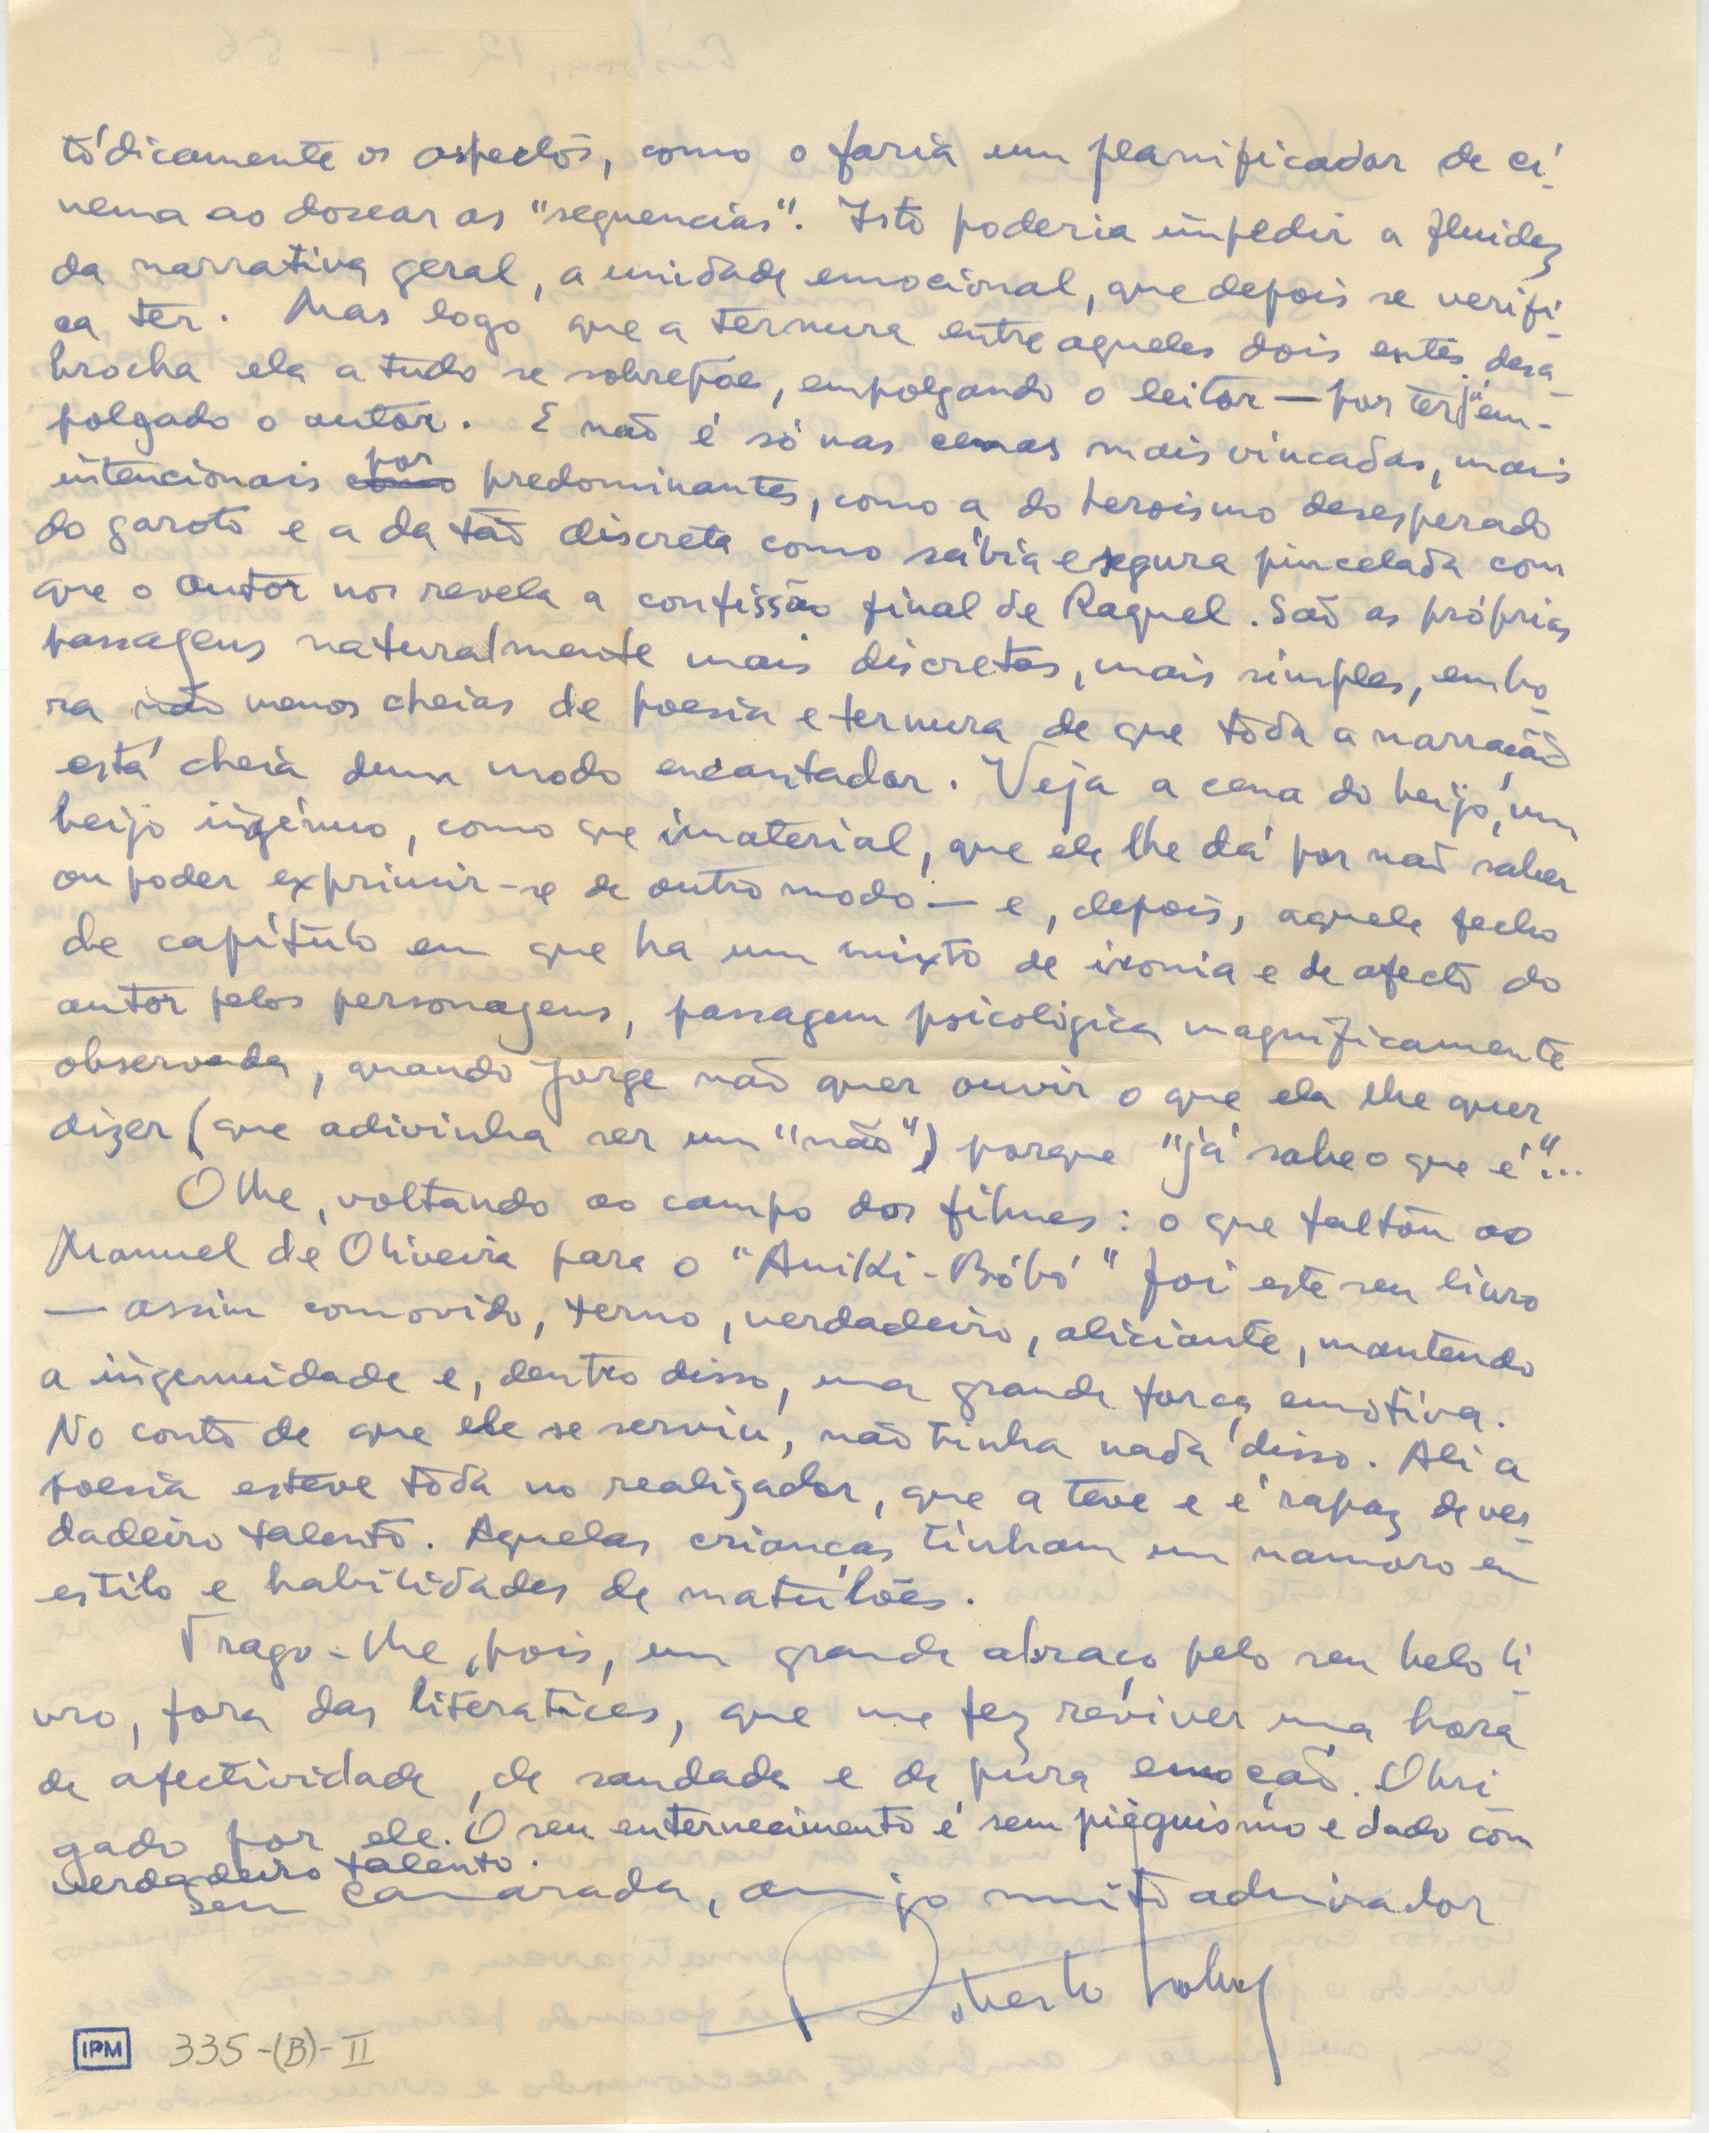 tódicamente os aspectos, como o faria um planificador de ci-
nema ao dosear as "sequencias". Isto poderia impedir a fluidez
da narrativa geral, a unidade emocional, que depois se verifi-
ca ter. Mas logo que a ternura entre aqueles dois entes desa-
brocha ela a tudo se sobrepõe, empolgando o leitor — por ter já em-
polgado o autor. E não é só nas cenas mais vincadas, mais
intencionais como por predominantes, como a do heroismo desesperado
do garoto e a da tão discreta como sábia e segura pincelada com
que o autor nos revela a confissão final de Raquel. São as próprias
passagens naturalmente mais discretas, mais simples, embo-
ra não menos cheias de poesia e ternura de que tôda a narração
está cheia dum modo encantador. Veja a cena do beijo, um
beijo ingénuo, como que imaterial, que ele lhe dá por não saber
ou poder exprimir-se de outro modo — e, depois, aquele fecho
de capítulo em que ha um mixto de ironia e de afecto do
autor pelos personagens, passagem psicológica magnificamente
observada, quando Jorge não quer ouvir o que ela lhe quer
dizer (que adivinha ser um "não") porque "já sabe o que é"...
Olhe, voltando ao campo dos filmes: o que faltou ao
Manuel de Oliveira para o "Aniki-Bóbó" foi este seu livro
— assim comovido, terno, verdadeiro, aliciante, mantendo
a ingenuidade e, dentro disso, uma grande força emotiva.
No conto de que ele se serviu, não tinha nada disso. Ali a
poesia esteve tôda no realizador, que a teve e é rapaz de ver-
dadeiro talento. Aquelas crianças tinham um namoro em
estilo e habilidades de matulões.
Trago-lhe, pois, um grande abraço pelo seu belo li-
vro, fora das literatices, que me fez reviver uma hora
de afectividade, de saudade e de pura emoção. Obri-
gado por ele. O seu enternecimento é sem pieguismo e dado com
verdadeiro talento.
Seu camarada, amigo muito admirador
Roberto Nobre
IPM 335-(B)-II